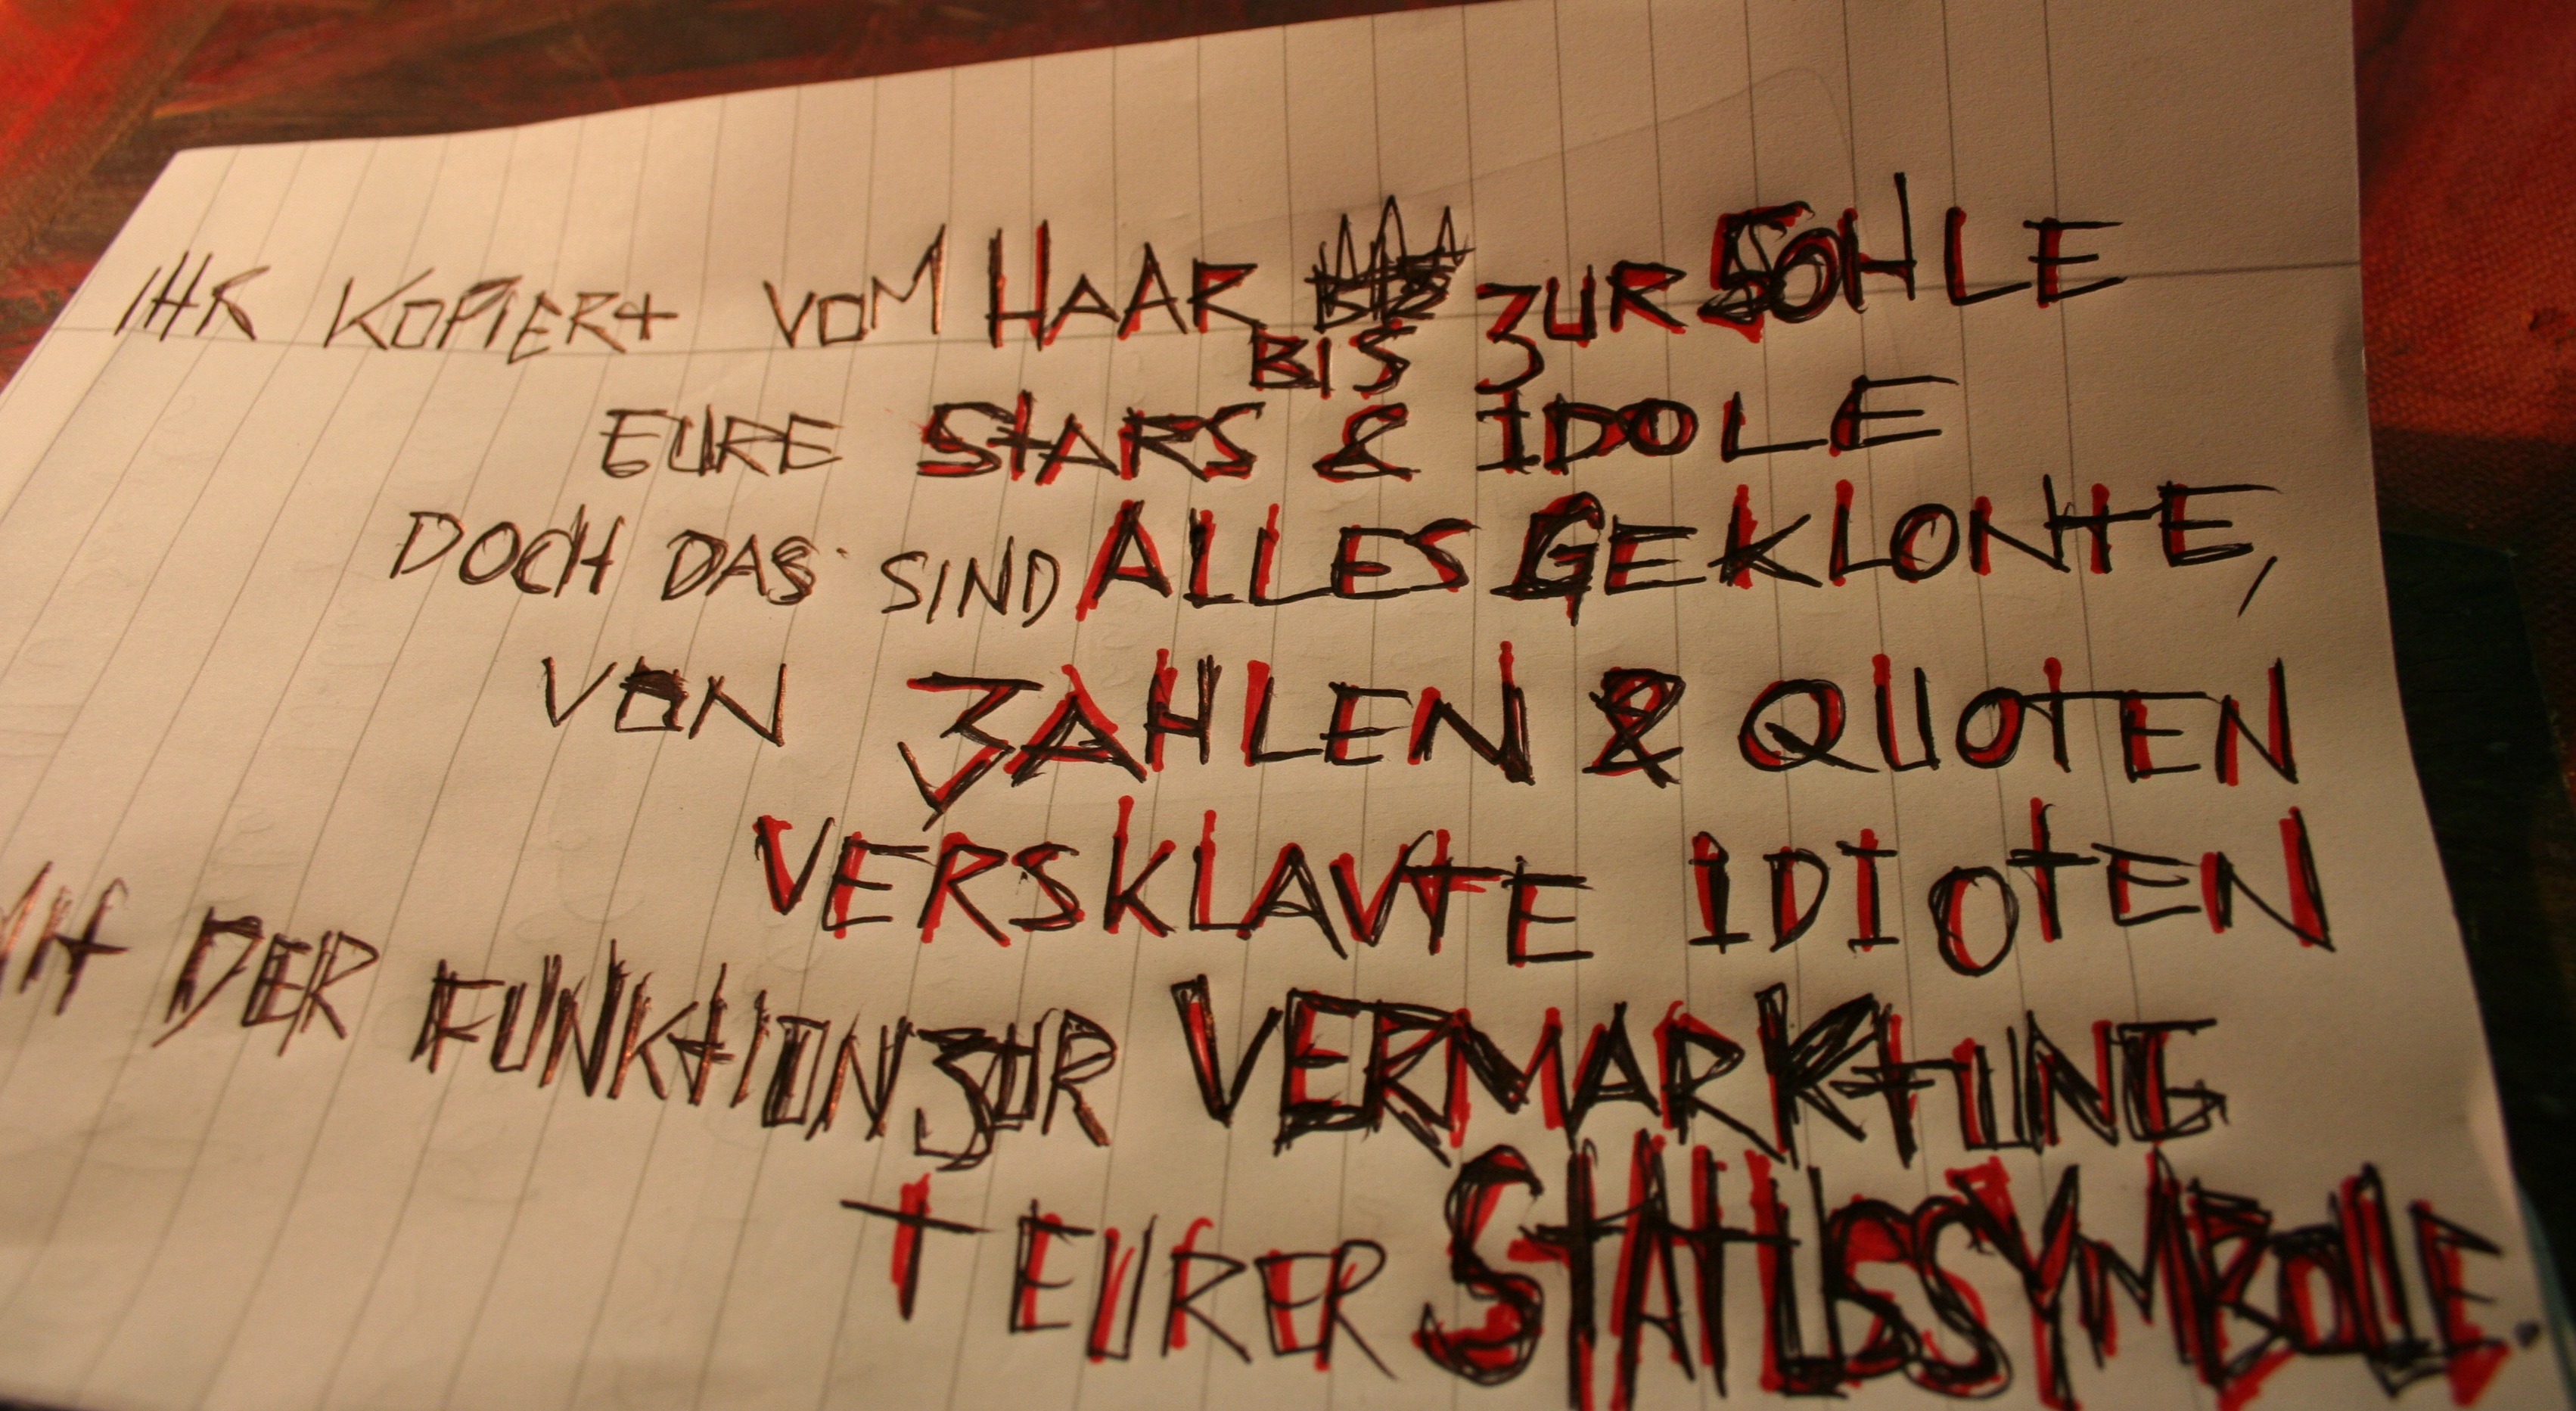 IHR KOPIERT VOM HAAR BIS ZUR SOHLE
EURE STARS & IDOLE
DOCH DAS SIND ALLES GEKLONTE,
VON ZAHLEN & QUOTEN
VERSKLAVTE IDIOTEN
MIT DER FUNKTION ZUR VERMARKTUNG
EURER STATUSSYMBOLE.